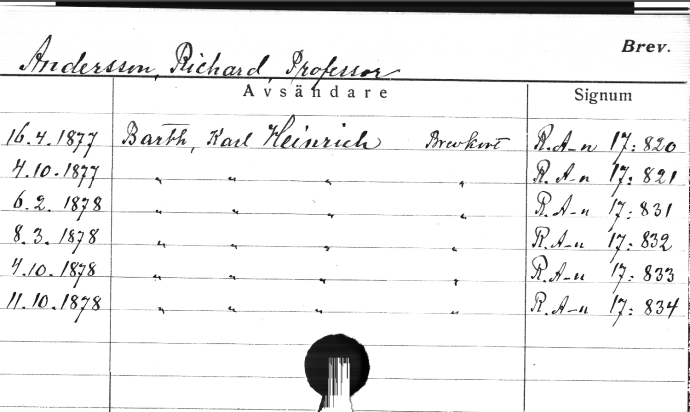 Brev.
Andersson, Richard, Professor
Avsändare Signum
16.4.1877 Barth, Karl Heinrich Brevkort R. A-n 17: 820
4.10.1877 " " " " R. A-n 17: 821
6.2.1878 " " " " R. A-n 17: 831
8.3.1878 " " " " R. A-n 17: 832
4.10.1878 " " " " R. A-n 17: 833
11.10.1878 " " " " R. A-n 17: 834